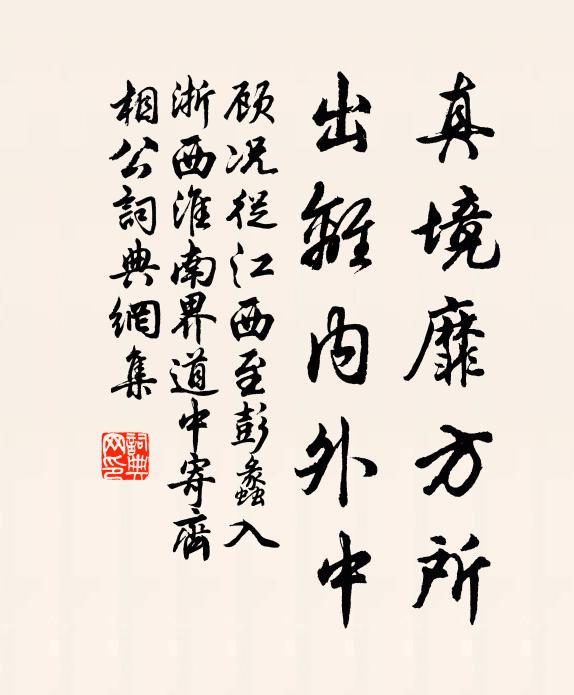 真境靡方所
出離内外中
顾况從江西至彭蠡入
浙西淮南界道中寄齊
相公詞典網集
詞典
网印